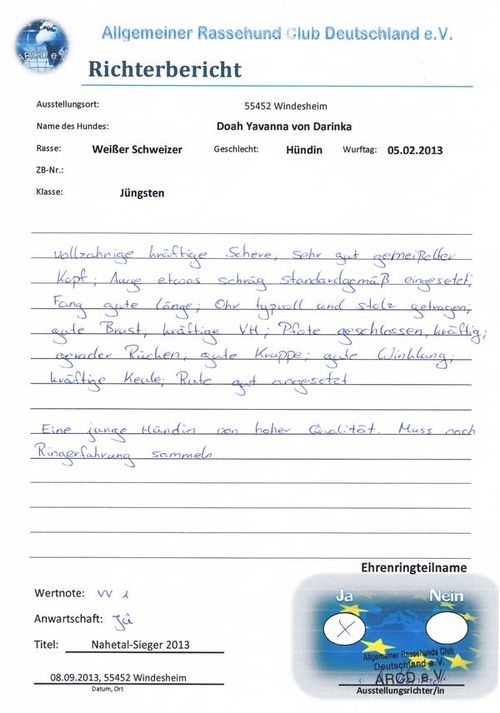 ARCD e.V.
Allgemeiner Rassehund Club Deutschland e.V.
Richterbericht
Ausstellungsort: 55452 Windesheim
Name des Hundes: Doah Yavanna von Darinka
Rasse: Weißer Schweizer Geschlecht: Hündin Wurftag: 05.02.2013
ZB-Nr.:
Klasse: Jüngsten
vollzahnige kräftige Schere, sehr gut gemeißelter
Kopf; Auge etwas schräg standardgemäß eingesetzt,
Fang gute Länge; Ohr typvoll und stolz getragen,
gute Brust; kräftige VH; Pfote geschlossen, kräftig;
gerader Rücken; gute Kruppe; gute Winklung;
kräftige Keule; Rute gut angesetzt
Eine junge Hündin von hoher Qualität. Muss noch
Ringerfahrung sammeln.
Ehrenringteilname
Wertnote: VV 1
Ja Nein
Anwartschaft: Ja
X
Titel: Nahetal-Sieger 2013
Allgemeiner Rassehunde Club
Deutschland e.V.
ARCD e.V.
08.09.2013, 55452 Windesheim
Datum, Ort
Ausstellungsrichter/in